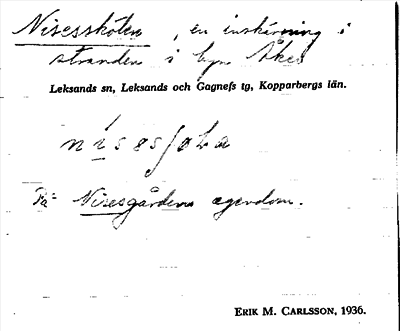 Nisesskôten, en inskärning i
stranden i byn Åkerö
Leksands sn, Leksands och Gagnefs tg, Kopparbergs län.
På Nisesgårdens egendom.
ERIK M. CARLSSON, 1936.